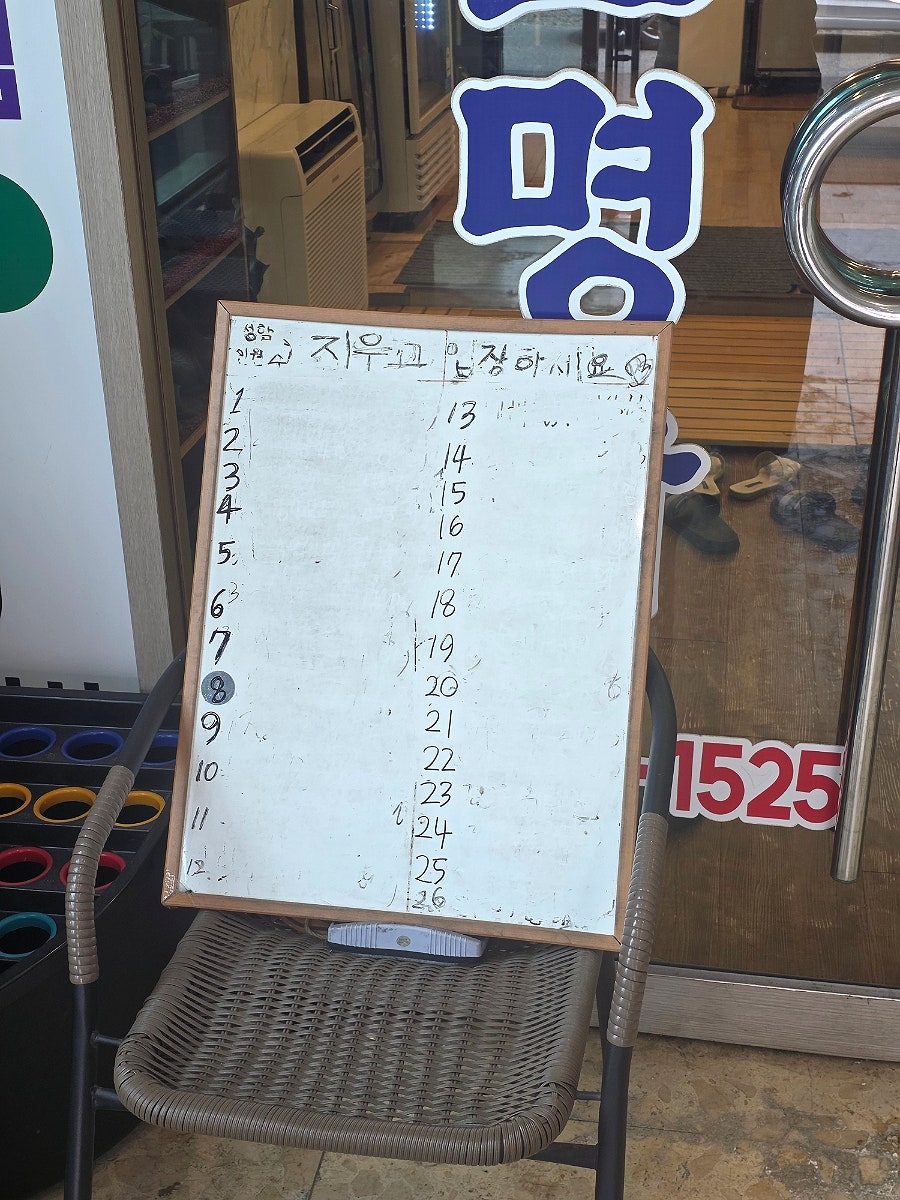 명
성함
인원수 지우고 입장하세요
1
2
3
4
5
6
7
8
9
10
11
12
13
14
15
16
17
18
19
20
21
22
23
24
25
26
1525